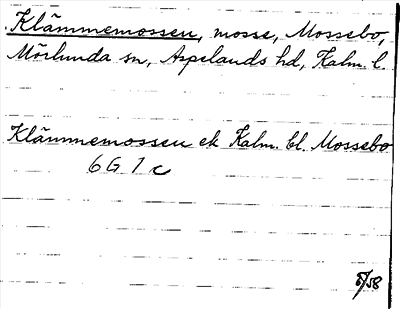 Klämmemossen, mosse, Mossebo,
Mörlunda sn, Aspelands hd, Kalm. l.
Klämmemossen ek Kalm. bl. Mossebo
6 G 1 c
5/58